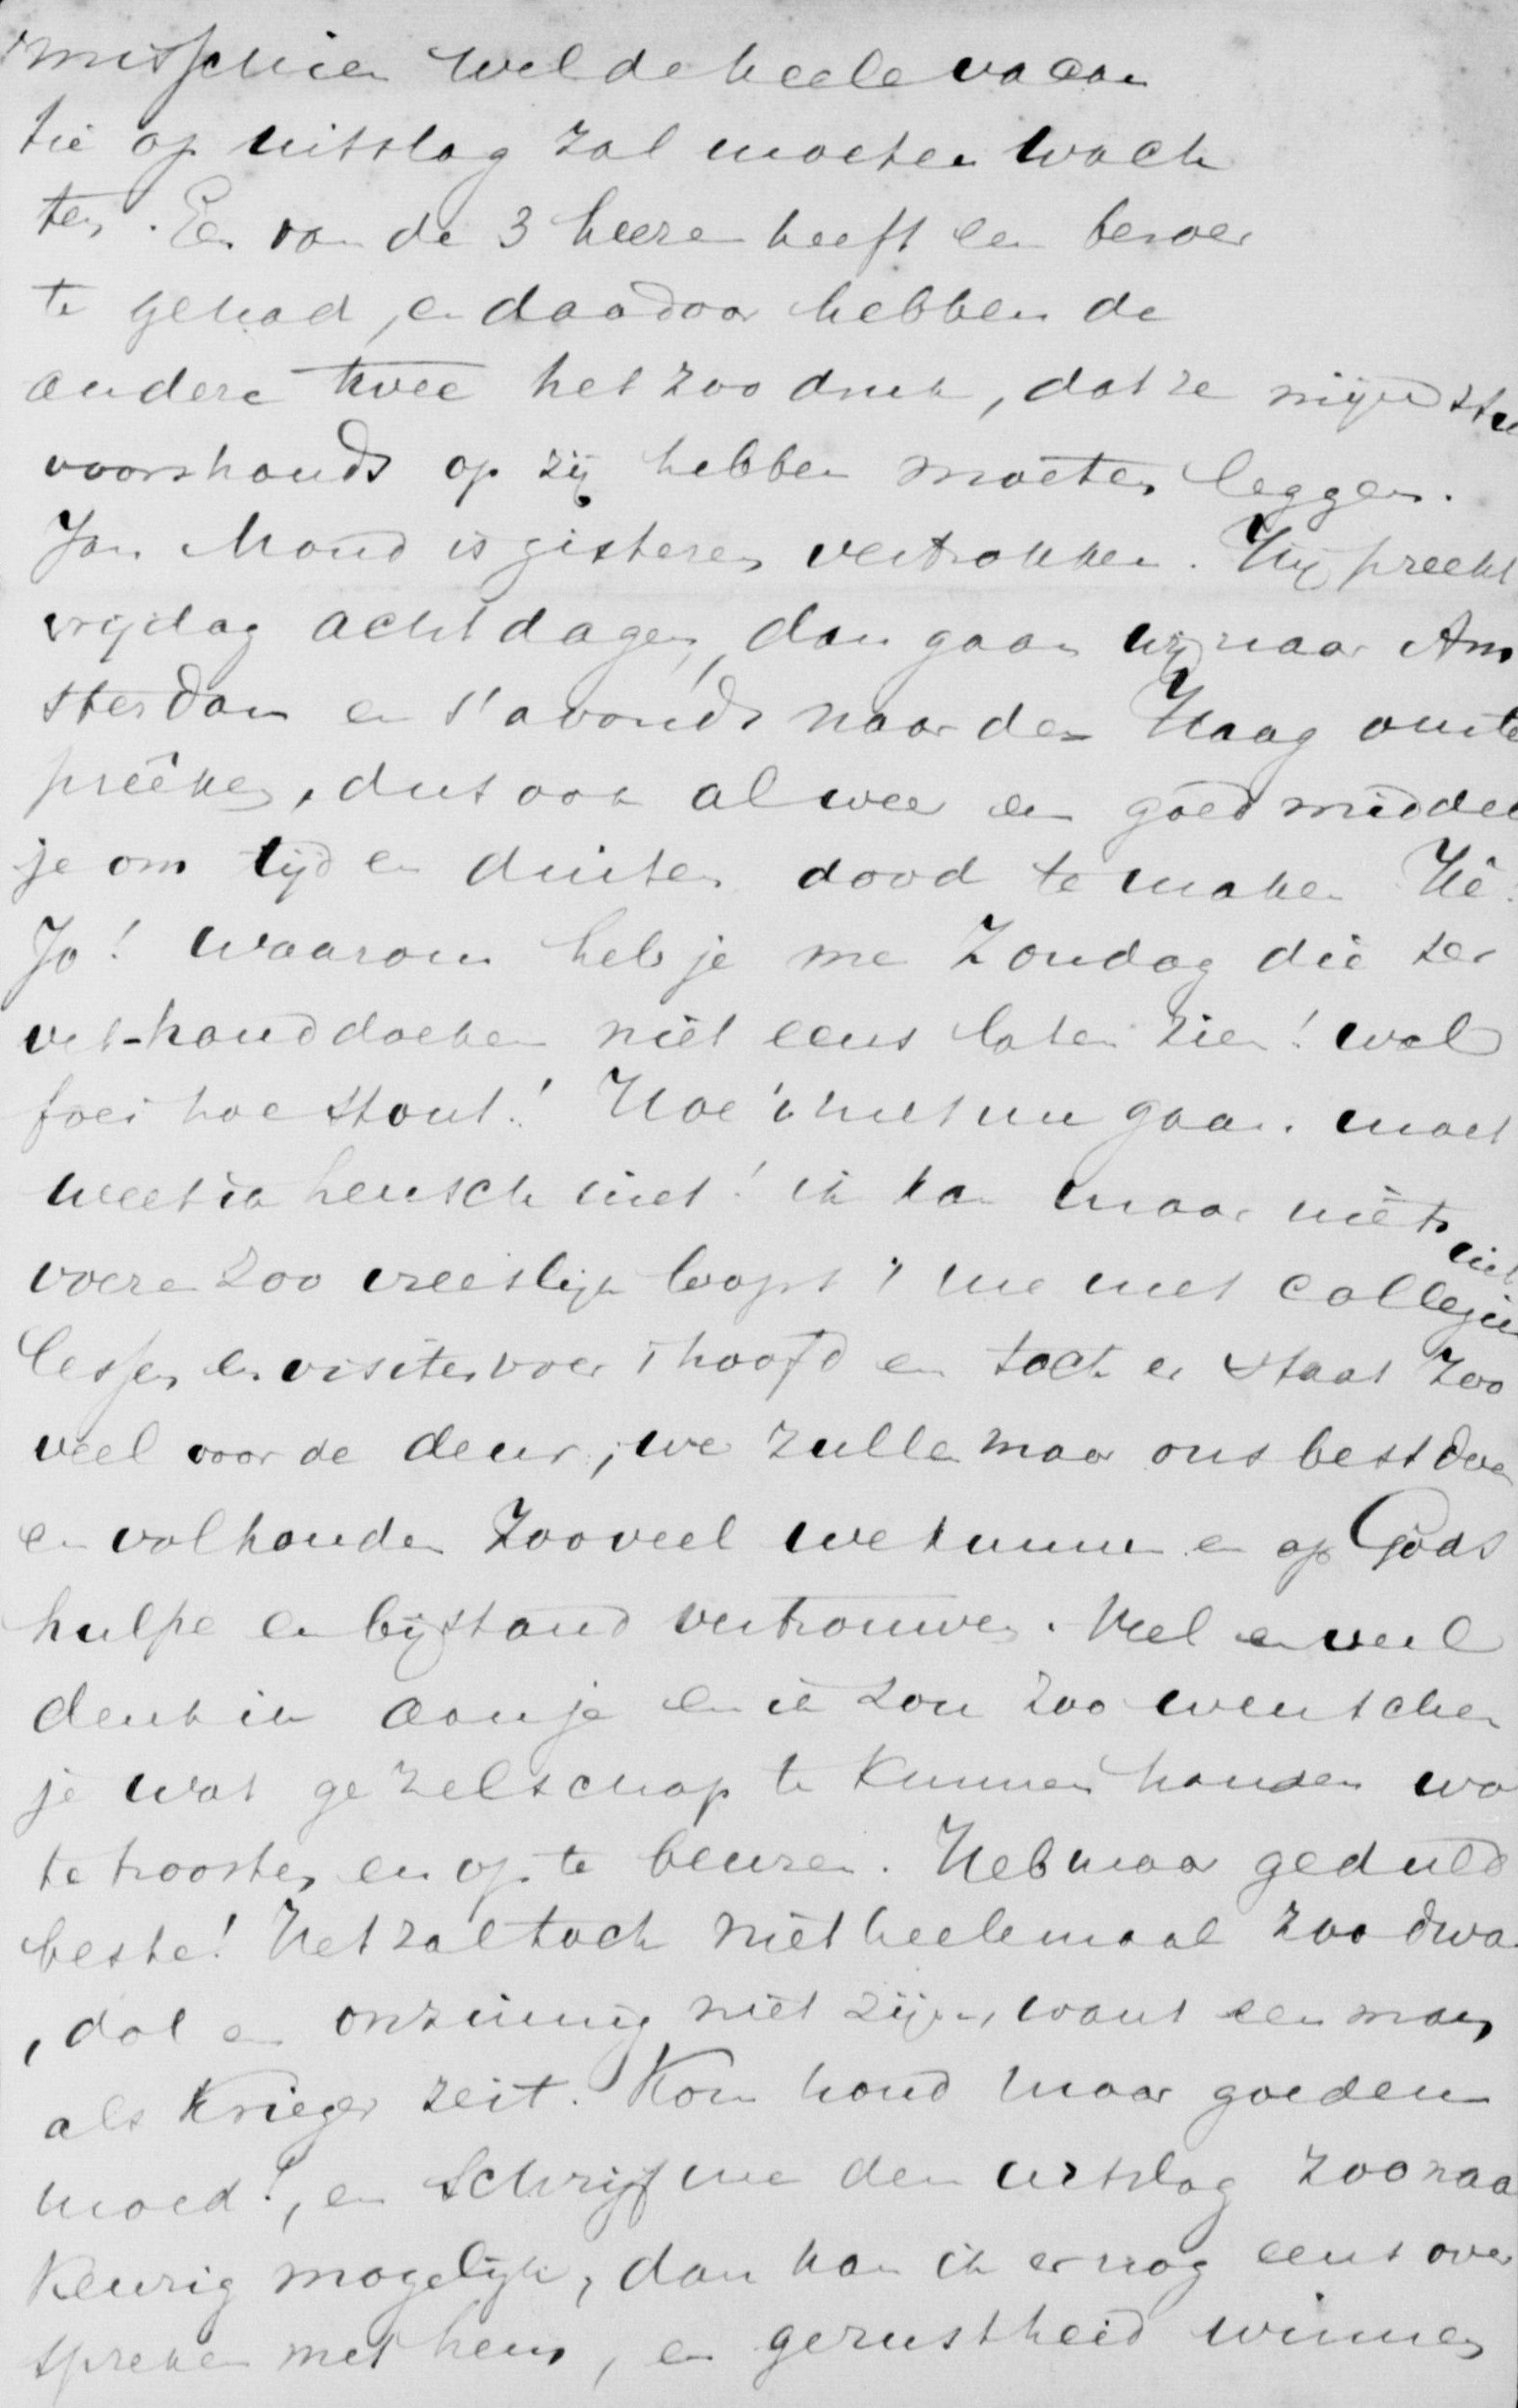 misschien wel de heele vacan
tie op uitslag zal moeten wach
ten. Een van de 3 heeren heeft een beroer
te gehad, en daardoor hebben de
andere twee het zoo druk, dat ze mijn stu
voorshands op zij hebben moeten leggen.
Jan Mond is gisteren vertrokken. Hij preekt
vrijdag acht dagen, dan gaan wij naar Am
sterdam en s'avonds naar den Haag om te
preêken, dus ook al weer een goed middel
je om tijd en duiten dood te maken Hè!
Jo! waarom heb je me Zondag die ser
vet-handdoeken niet eens laten zien! wel
foei hoe stout! Hoe 't met me gaan moet
weet ik heusch niet! ik kan maar niets
voeren zoo vreeslijk loopt 't me met collegie
lessen en visites voor 't hoofd en toch er staat zoo
veel voor de deur; we zullen maar ons best doen
en volhouden zooveel we kunnen en op Gods
hulpe en bijstand vertrouwen. Veel en veel
denk ik aan je en ik zou zoo wenschen
je wat gezelschap te kunnen houden wa
te troosten en op te beuren. Heb maar geduld
beste! Het zal toch niet heelemaal zoo dwa
, dol en onzinnig niet zijn, want een man
als Krieger zeit. Kom houd maar goeden
moed!, en schrijf me den uitslag zoo naa
keurig mogelijk, dan kan ik er nog eens over
spreken met hem, en gerustheid winnen